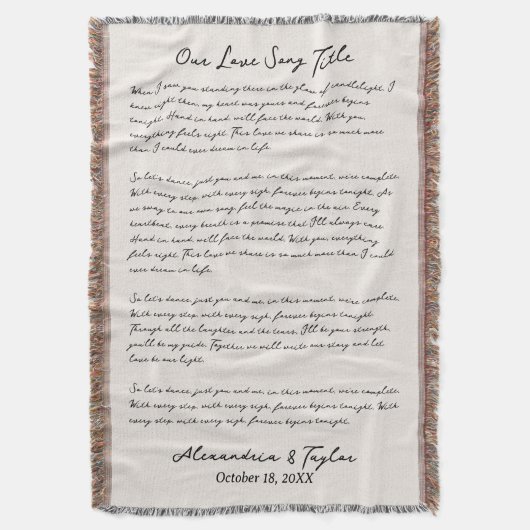 Our Love Song Title
When I saw you standing there in the glow of candlelight, I
knew right then, my heart was yours and forever begins
tonight. Hand in hand, we'll face the world. With you,
everything feels right. This love we share is so much more
than I could ever dream in life.
So let's dance, just you and me, in this moment, we're complete.
With every step, with every sigh, forever begins tonight. As
we sway to our own song, feel the magic in the air. Every
heartbeat, every breath is a promise that I'll always care.
Hand in hand, we'll face the world. With you, everything
feels right. This love we share is so much more than I could
ever dream in life.
So let's dance, just you and me, in this moment, we're complete.
With every step, with every sigh, forever begins tonight.
Through all the laughter and the tears, I'll be your strength,
you'll be my guide. Together we will write our story and let
love be our light.
So let's dance, just you and me, in this moment, we're complete.
With every step, with every sigh, forever begins tonight. With
every step, with every sigh, forever begins tonight.
Alexandria & Taylor
October 18, 20XX